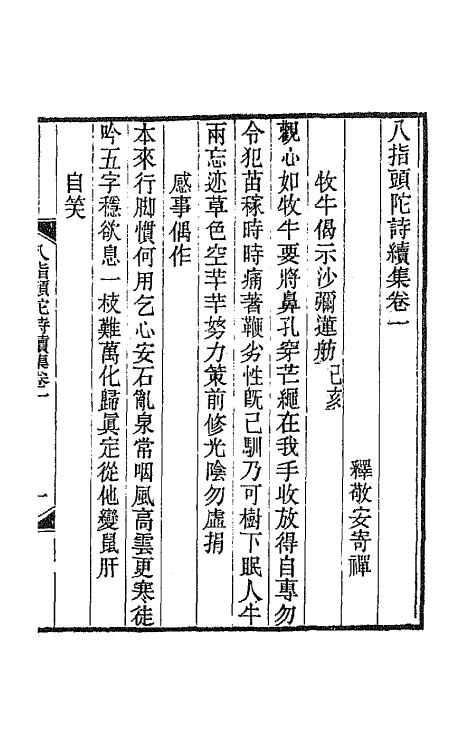 八指頭陀詩續集卷一
釋敬安寄禪
牧牛偈示沙彌蓮舫己亥
觀心如牧牛要將鼻孔穿芒繩在我手收放得自專勿
令犯苗稼時時痛著鞭劣性既已馴乃可樹下眠人牛
兩忘迹草色空芊芊努力策前修光陰勿虛捐
感事偶作
本來行脚慣何用乞心安石亂泉常咽風高雲更寒徒
吟五字穩欲息一枝難萬化歸眞定從他變鼠肝
自笑
八指頭陀詩續集卷一
一